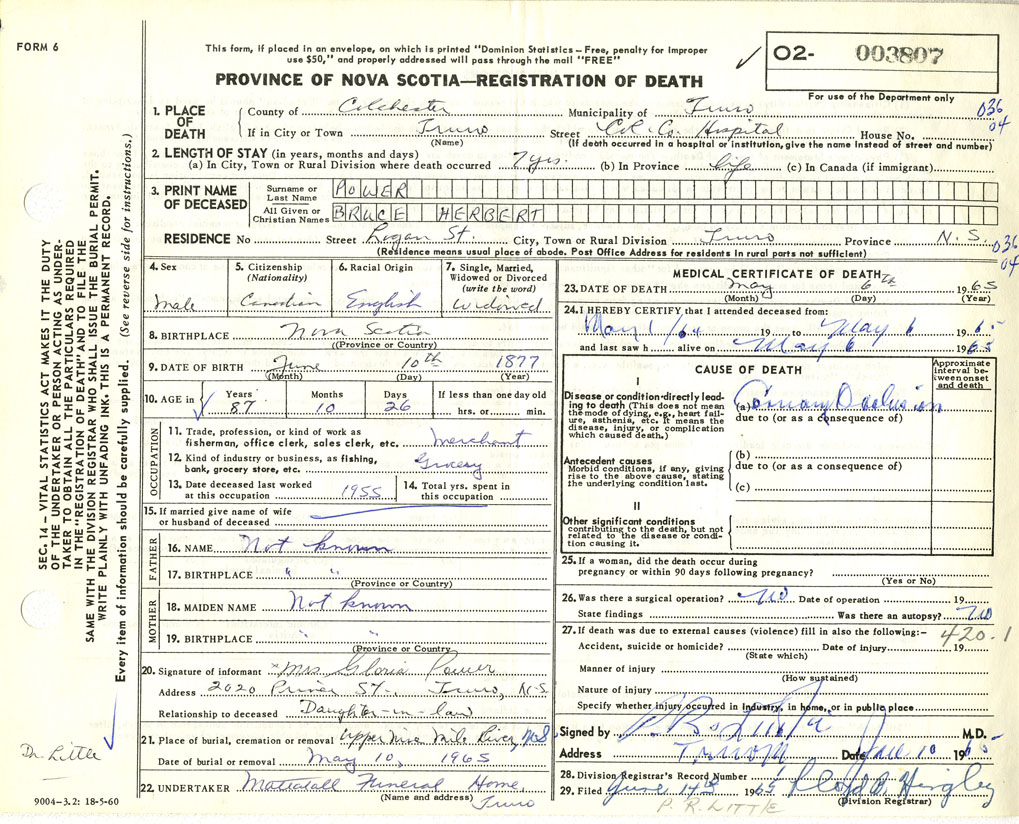 FORM 6
This form, if placed in an envelope, on which is printed "Dominion Statistics – Free, penalty for improper
use $50," and properly addressed will pass through the mail "FREE"
PROVINCE OF NOVA SCOTIA—REGISTRATION OF DEATH
✓ O2- 003807
For use of the Department only
1. PLACE OF DEATH County of Colchester Municipality of Truro 036
If in City or Town Truro Street Col. Co. Hospital House No. 04
(Name) (If death occurred in a hospital or institution, give the name instead of street and number)
2. LENGTH OF STAY (in years, months and days)
(a) In City, Town or Rural Division where death occurred 7 yrs. (b) In Province Life (c) In Canada (if immigrant)
3. PRINT NAME OF DECEASED Surname or Last Name POWER
All Given or Christian Names BRUCE HERBERT
RESIDENCE No Street Logan St. City, Town or Rural Division Truro Province N.S. 036
(Residence means usual place of abode. Post Office Address for residents in rural parts not sufficient) 04
4. Sex 5. Citizenship (Nationality) 6. Racial Origin 7. Single, Married, Widowed or Divorced (write the word)
Male Canadian English Widowed
8. BIRTHPLACE Nova Scotia
(Province or Country)
9. DATE OF BIRTH June 10th 1877
(Month) (Day) (Year)
10. AGE in ✓ Years Months Days If less than one day old
87 10 26 hrs. or min.
OCCUPATION
11. Trade, profession, or kind of work as
fisherman, office clerk, sales clerk, etc. Merchant
12. Kind of industry or business, as fishing,
bank, grocery store, etc. Grocery
13. Date deceased last worked at this occupation 1955 14. Total yrs. spent in this occupation
15. If married give name of wife
or husband of deceased
FATHER
16. NAME Not known
17. BIRTHPLACE " "
(Province or Country)
MOTHER
18. MAIDEN NAME Not known
19. BIRTHPLACE " "
(Province or Country)
20. Signature of informant Mrs Gloria Power
Address 2020 St., Truro, N.S
Relationship to deceased Daughter-in-law
21. Place of burial, cremation or removal Upper Nine Mile River, N.S
Date of burial or removal May 10, 1965
22. UNDERTAKER Mattatall Funeral Home,
(Name and address) Truro
MEDICAL CERTIFICATE OF DEATH
23. DATE OF DEATH May 6th 1965
(Month) (Day) (Year)
24. I HEREBY CERTIFY that I attended deceased from:
May 1/64 19 to May 6 1965
and last saw h alive on May 6 1965
CAUSE OF DEATH
Approximate interval between onset and death
I
Disease or condition directly leading to death (This does not mean the mode of dying, e.g., heart failure, asthenia, etc. It means the disease, injury, or complication which caused death.)
(a) Coronary Occlusion
due to (or as a consequence of)
Antecedent causes
Morbid conditions, if any, giving rise to the above cause, stating the underlying condition last.
(b)
due to (or as a consequence of)
(c)
II
Other significant conditions
contributing to the death, but not related to the disease or condition causing it.
25. If a woman, did the death occur during
pregnancy or within 90 days following pregnancy?
(Yes or No)
26. Was there a surgical operation? No Date of operation 19
State findings Was there an autopsy? No
27. If death was due to external causes (violence) fill in also the following:– 420.1
Accident, suicide or homicide? Date of injury 19
(State which)
Manner of injury
(How sustained)
Nature of injury
Specify whether injury occurred in industry, in home, or in public place
Signed by P. R. Little M.D.
Address Truro Date June 10 1965
28. Division Registrar's Record Number
29. Filed June 14th 1965 Lloyd A Hingley
(Division Registrar)
P. R. LITTLE
SEC. 14 – VITAL STATISTICS ACT MAKES IT THE DUTY
OF THE UNDERTAKER OR PERSON ACTING AS UNDER-
TAKER TO OBTAIN ALL THE PARTICULARS REQUIRED
IN THE "REGISTRATION OF DEATH" AND TO FILE THE
SAME WITH THE DIVISION REGISTRAR WHO SHALL ISSUE THE BURIAL PERMIT.
WRITE PLAINLY WITH UNFADING INK. THIS IS A PERMANENT RECORD.
Every item of information should be carefully supplied. (See reverse side for instructions.)
Dr. Little
9004–3.2: 18-5-60